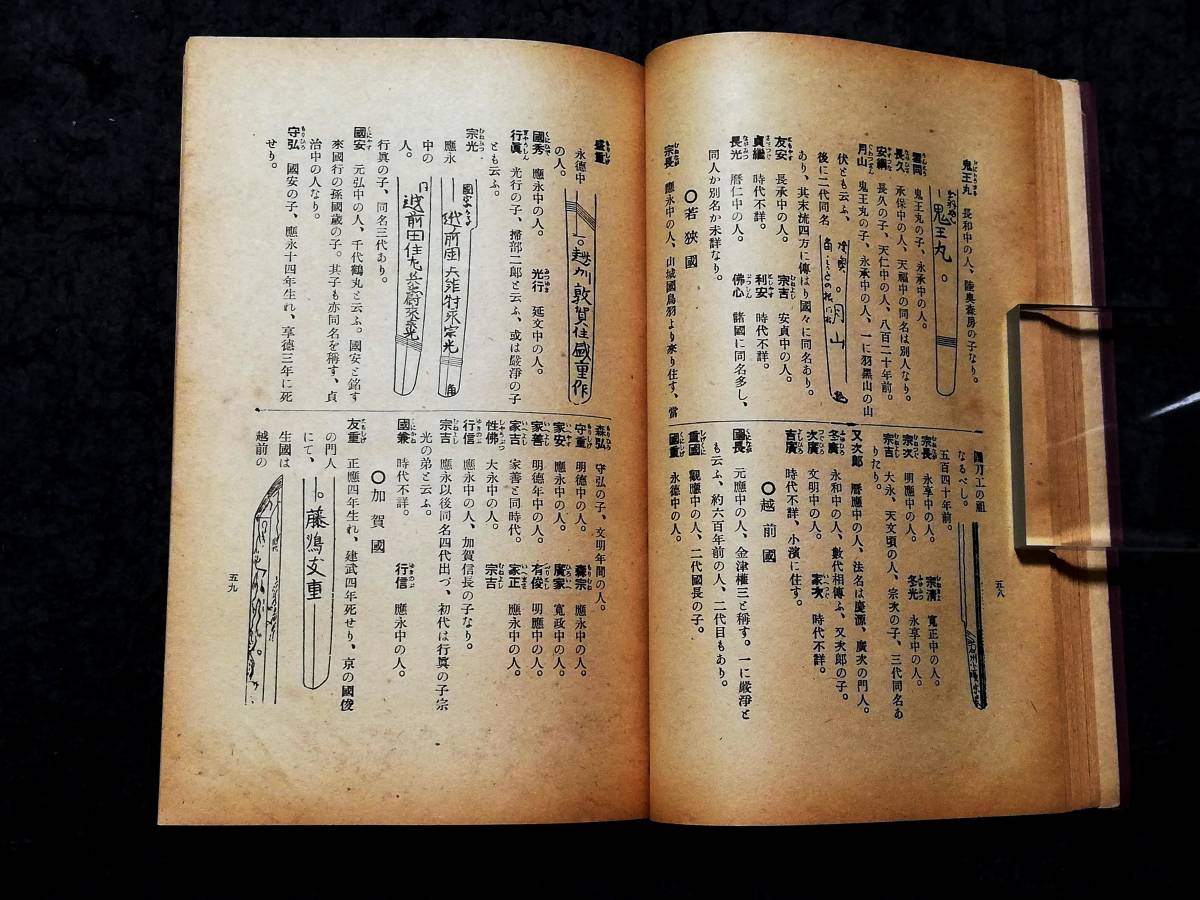 鬼王丸 長和中の人、陸奥森房の子なり。
鬼王丸。
雲同 鬼王丸の子、永承中の人。
長久 承保中の人、天福中の同名は別人なり。
安綱 長久の子、天仁中の人、八百二十年前。
月山 鬼王丸の子、永承中の人、一に羽黑山の山
伏とも云ふ、
月山
後に二代同名
あり、其末流四方に傳はり國々に同名あり。
友安 長承中の人。 宗吉 安貞中の人。
貞繼 時代不詳。 利安 時代不詳。
長光 曆仁中の人。 佛心 諸國に同名多し、
同人か別名か未詳なり。
〇若狹國
宗長 應永中の人、山城國鳥羽より來り住す、當
國刀工の祖
なるべし。
五百四十年前。
宗長 永享中の人。 宗清 寬正中の人。
宗次 明應中の人。 冬光 永享中の人。
宗吉 大永、天文頃の人、宗次の子、三代同名あ
りたり。
又次郎 曆應中の人、法名は慶源、廣次の門人。
冬廣 永和中の人、數代相傳ふ、又次郎の子。
次廣 文明中の人。 家次 時代不詳。
吉廣 時代不詳、小濱に住す。
〇越前國
國長 元應中の人、金津權三と稱す。一に嚴淨と
も云ふ、約六百年前の人、二代目もあり。
重國 觀應中の人、二代國長の子。
國重 永德中の人。
五八
盛重 永德中
の人。
一。越州敦賀住盛重作
國秀 應永中の人。 光行 延文中の人。
行眞 光行の子、掃部二郎と云ふ、或は嚴淨の子
とも云ふ。
宗光 應永
中の
人。
行眞の子、同名三代あり。
國安 元弘中の人、千代鶴丸と云ふ。國安と銘す
來國行の孫國歳の子。其子も亦同名を稱す、貞
治中の人なり。
守弘 國安の子、應永十四年生れ、享德三年に死
せり。
森弘 守弘の子、文明年間の人。
守重 明德中の人。 森宗 應永中の人。
家安 應永中の人。 廣家 寬政中の人。
家善 明德年中の人。 有俊 明應中の人。
家吉 家善と同時代。 家正 應永中の人。
性佛 大永中の人。 宗吉
行信 應永中の人、加賀信長の子なり。
宗吉 應永以後同名四代出づ、初代は行眞の子宗
光の弟と云ふ。
國兼 時代不詳。 行信 應永中の人。
〇加賀國
友重 正應四年生れ、建武四年死せり、京の國俊
の門人
にて、
生國は
越前の
藤嶋友重
五九